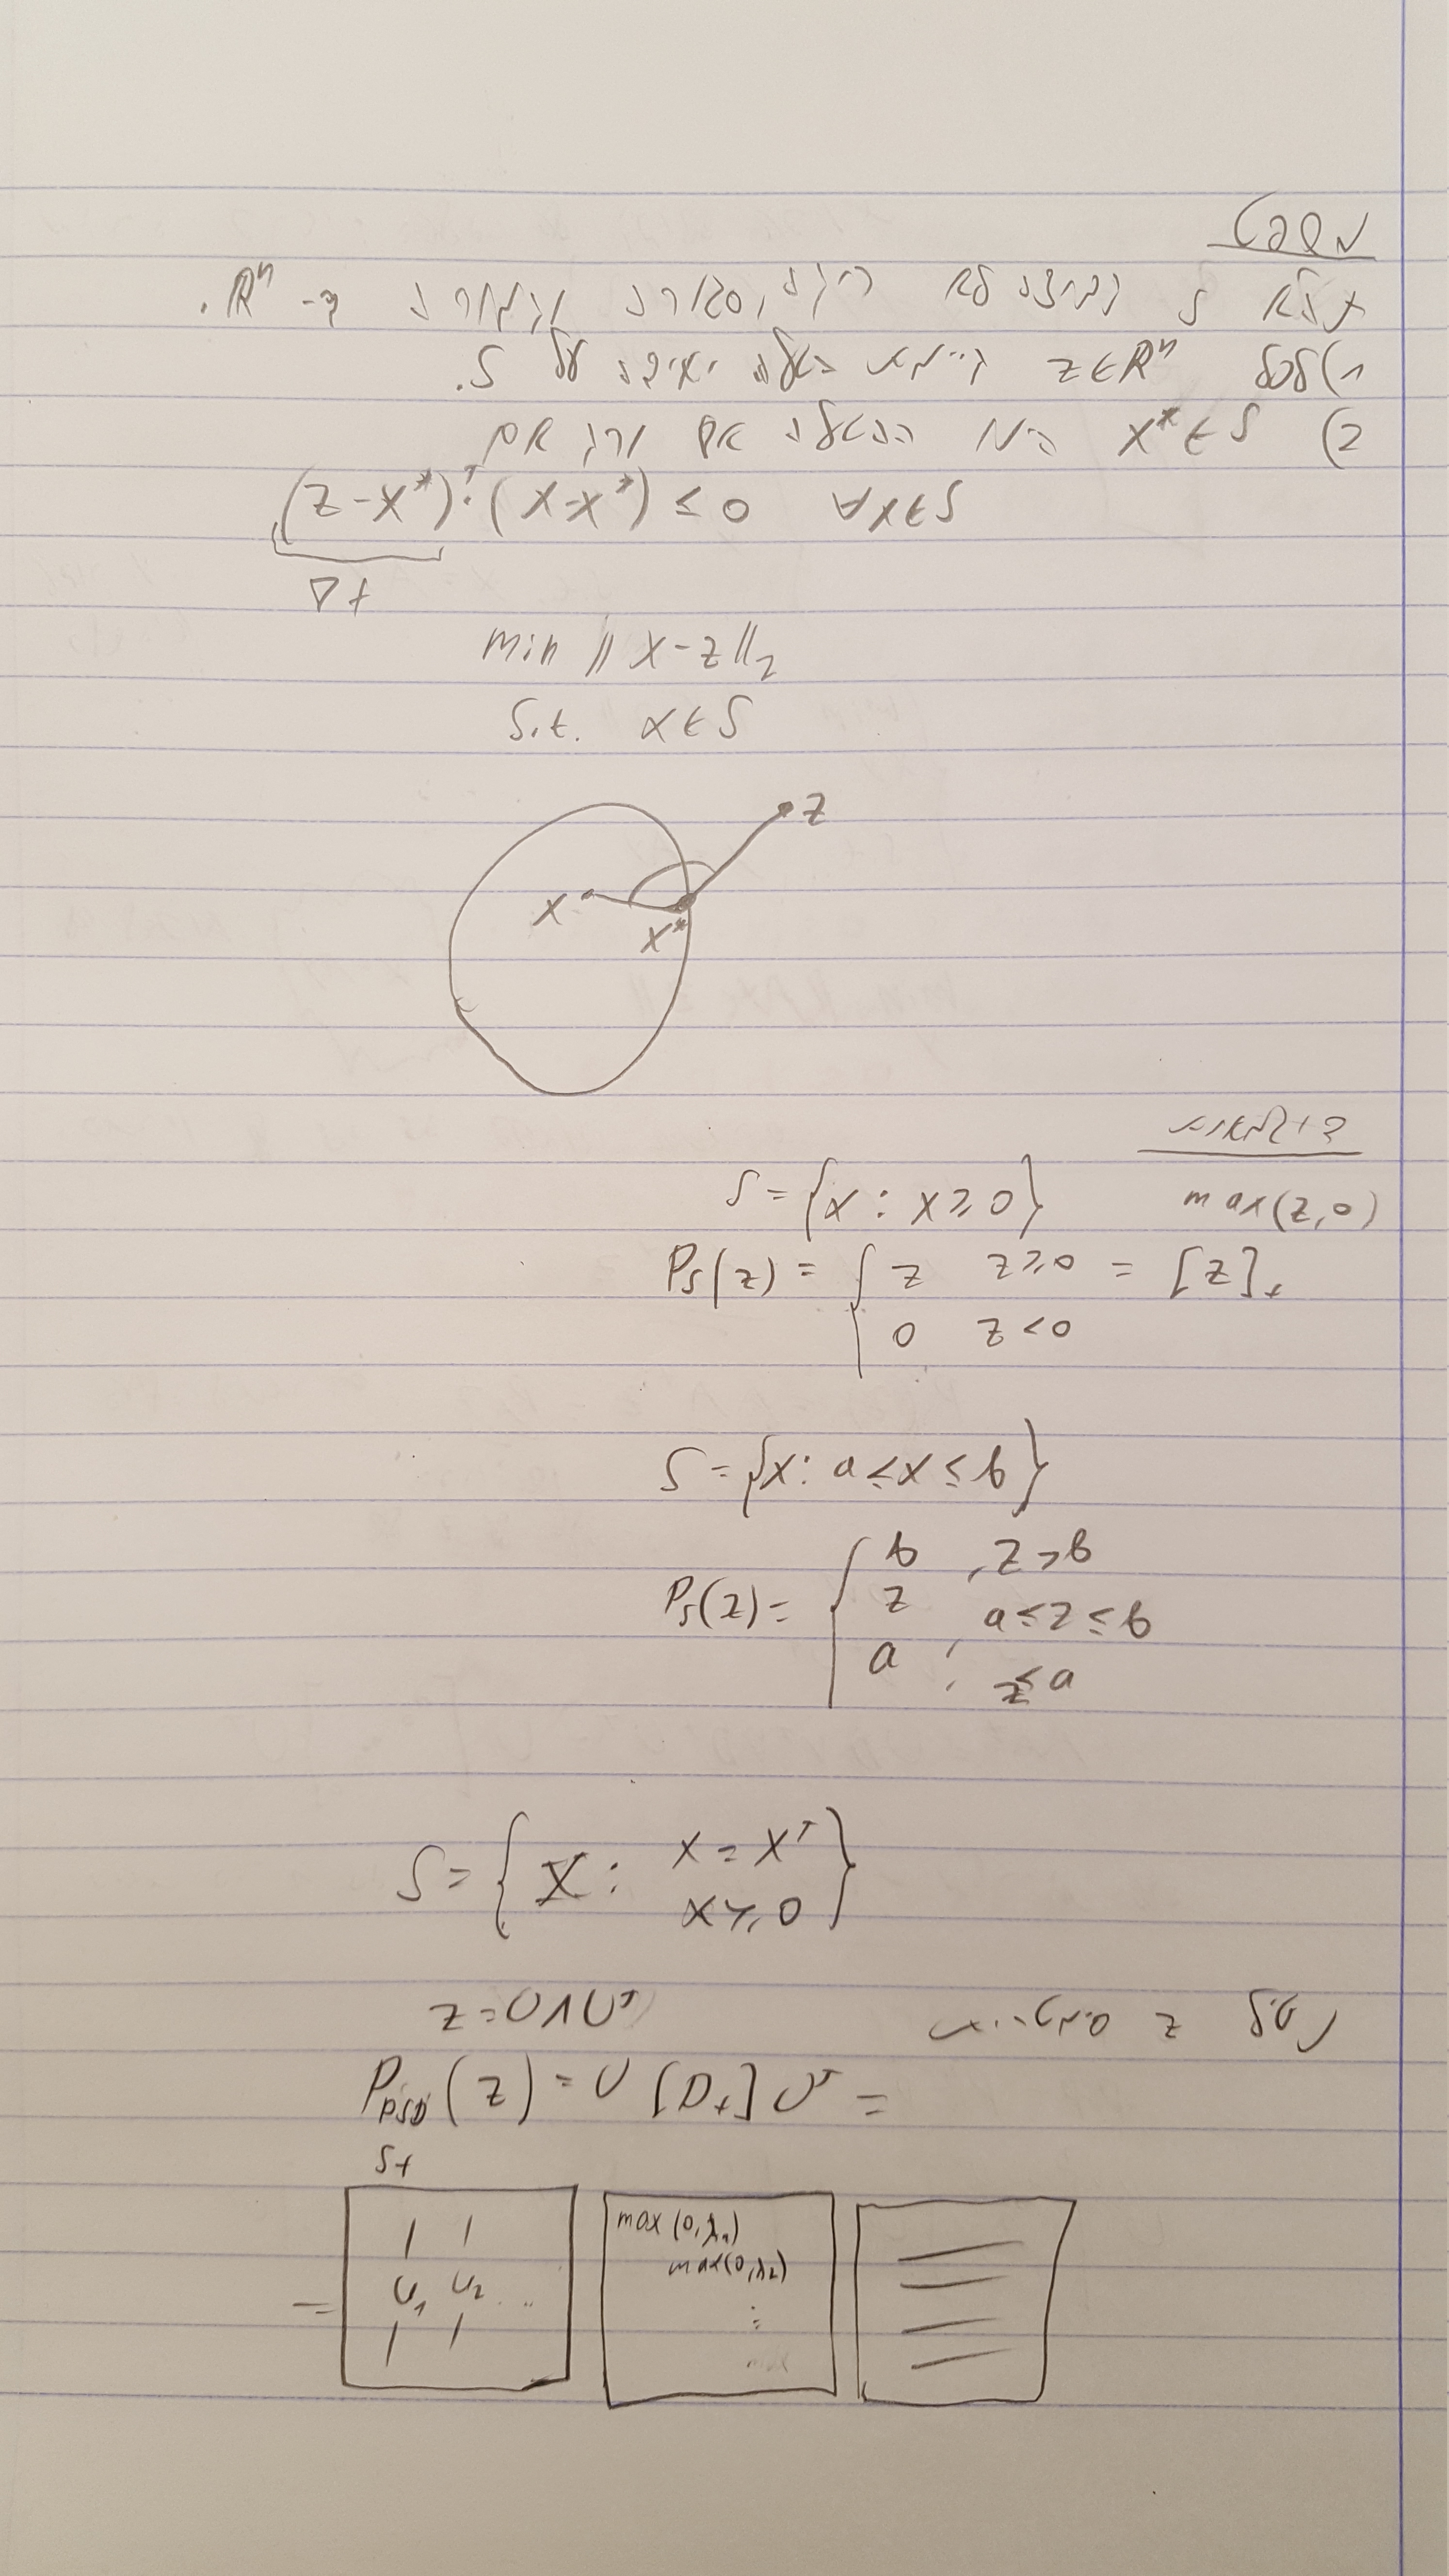 משפט
תהא S קבוצה לא ריקה, סגורה וקמורה ב- Rⁿ.
1) לכל z∈Rⁿ קיימת הטלה יחידה על S.
2) x*∈S הוא ההטלה אם ורק אם
(z-x*)ᵀ·(x-x*) ≤ 0 ∀x∈S
∇f
min ||x-z||₂
s.t. x∈S
z
x
x*
דוגמאות
S={x: x≥0} max(z,0)
Pₛ(z) = { z z≥0 = [z]₊
0 z<0
S={x: a≤x≤b}
b , z>b
Pₛ(z)= { z a≤z≤b
a , z≤a
S={X: x=xᵀ
x≽0}
z סימטרית z=UΛUᵀ
P_PSD(z)=U[D₊]Uᵀ=
S₊
= u₁ u₂ ... max(0,λ₁)
max(0,λ₂)
⋮